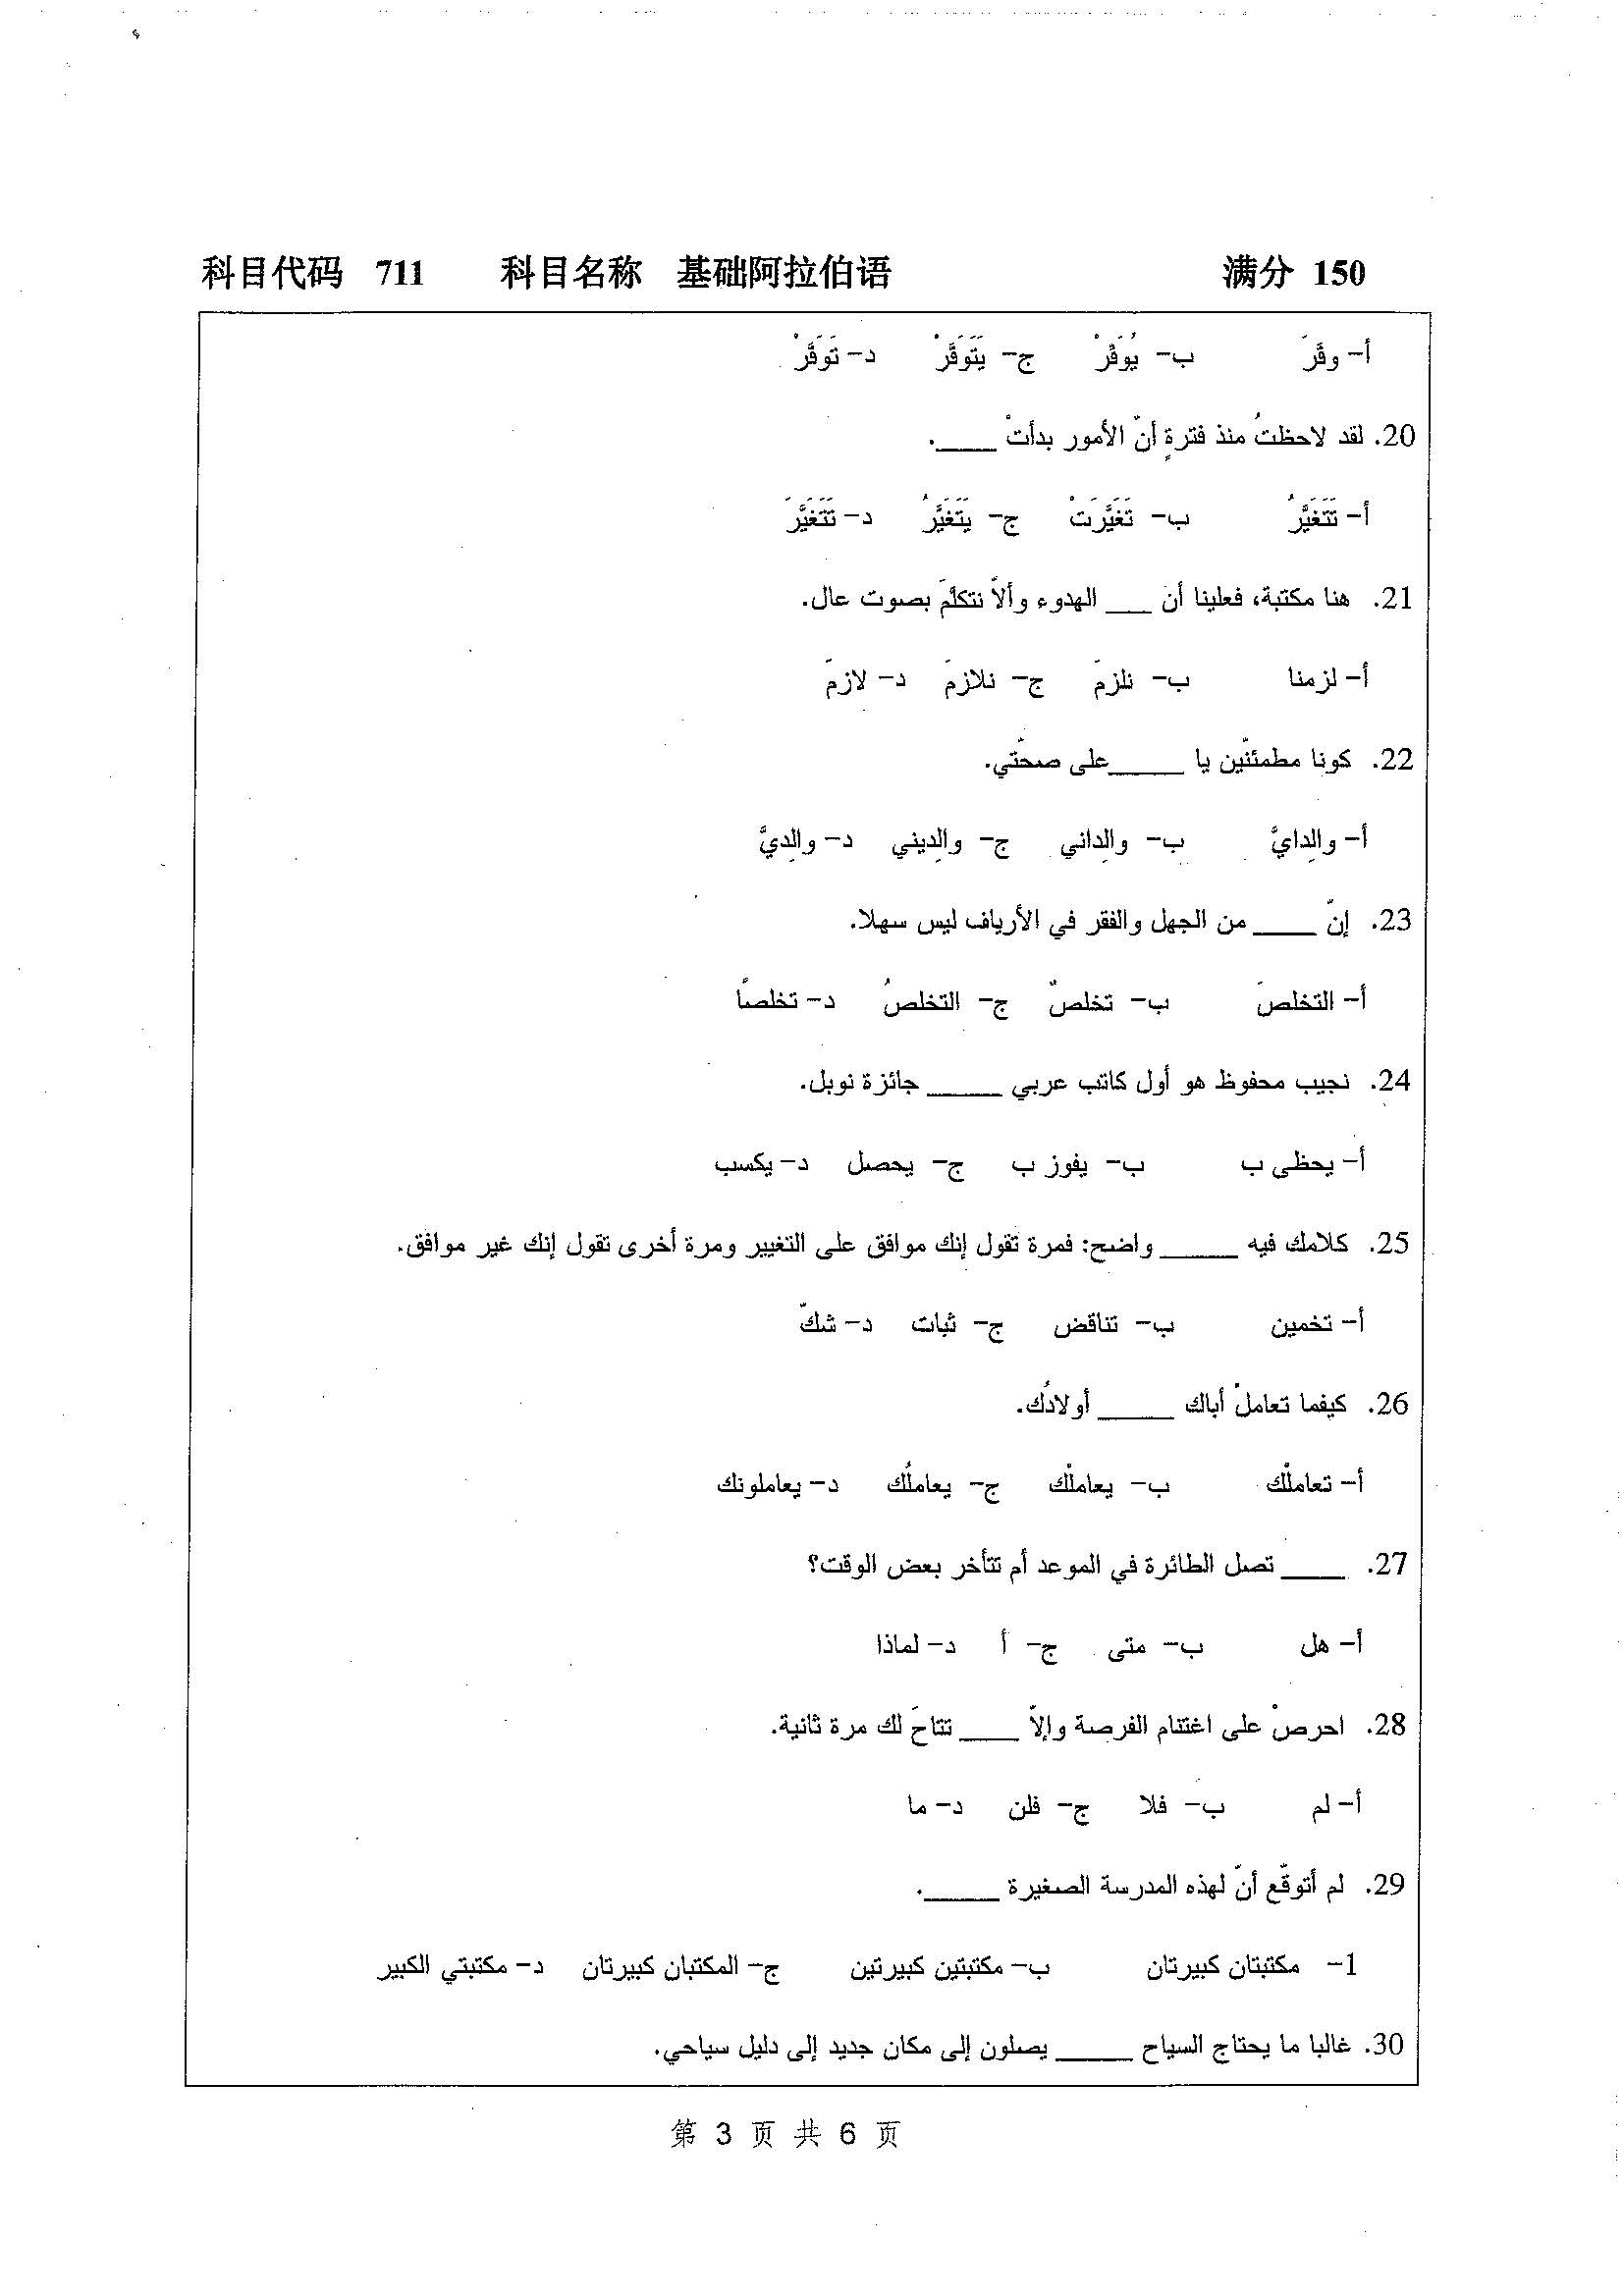 科目代码 711 科目名称 基础阿拉伯语 满分 150
أ- وفَّرَ ب- يُوَفِّرْ ج- يَتَوَفَّرْ د- تَوَفَّرْ
20. لقد لاحظتُ منذ فترةٍ أنّ الأمور بدأتْ ____.
أ- تَتَغَيَّرُ ب- تَغَيَّرَتْ ج- يَتَغَيَّرُ د- تَتَغَيَّرَ
21. هنا مكتبة، فعلينا أن ___ الهدوء وألاّ نتكلّمَ بصوت عال.
أ- لزمنا ب- نلزمَ ج- نلازمَ د- لازمَ
22. كونا مطمئنّين يا _____على صحّتي.
أ- والِدايَّ ب- والِداني ج- والِديني د- والِديَّ
23. إنّ ____ من الجهل والفقر في الأرياف ليس سهلا.
أ- التخلصَ ب- تخلصٌ ج- التخلصُ د- تخلصًا
24. نجيب محفوظ هو أول كاتب عربي _____ جائزة نوبل.
أ- يحظى ب ب- يفوز ب ج- يحصل د- يكسب
25. كلامك فيه _____ واضح: فمرة تقول إنك موافق على التغيير ومرة أخرى تقول إنك غير موافق.
أ- تخمين ب- تناقض ج- ثبات د- شكّ
26. كيفما تعاملْ أباك _____ أولادُك.
أ- تعاملْك ب- يعاملْك ج- يعاملُك د- يعاملونك
27. ____ تصل الطائرة في الموعد أم تتأخر بعض الوقت؟
أ- هل ب- متى ج- أ د- لماذا
28. احرصْ على اغتنام الفرصة وإلاّ ____ تتاحَ لك مرة ثانية.
أ- لم ب- فلا ج- فلن د- ما
29. لم أتوقّع أنّ لهذه المدرسة الصغيرة _____.
1- مكتبتان كبيرتان ب- مكتبتين كبيرتين ج- المكتبان كبيرتان د- مكتبتي الكبير
30. غالبا ما يحتاج السياح _____ يصلون إلى مكان جديد إلى دليل سياحي.
第 3 页 共 6 页